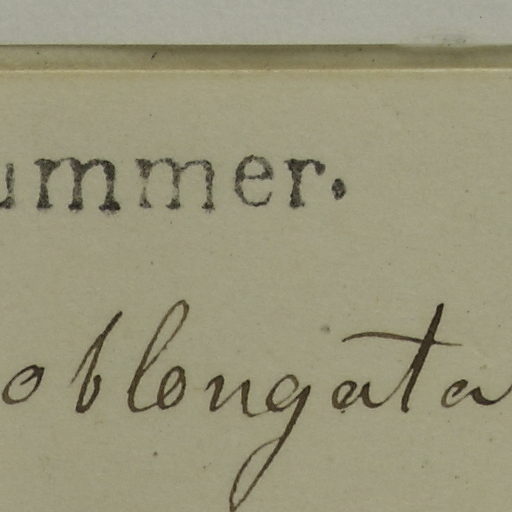 ummer.
oblongata